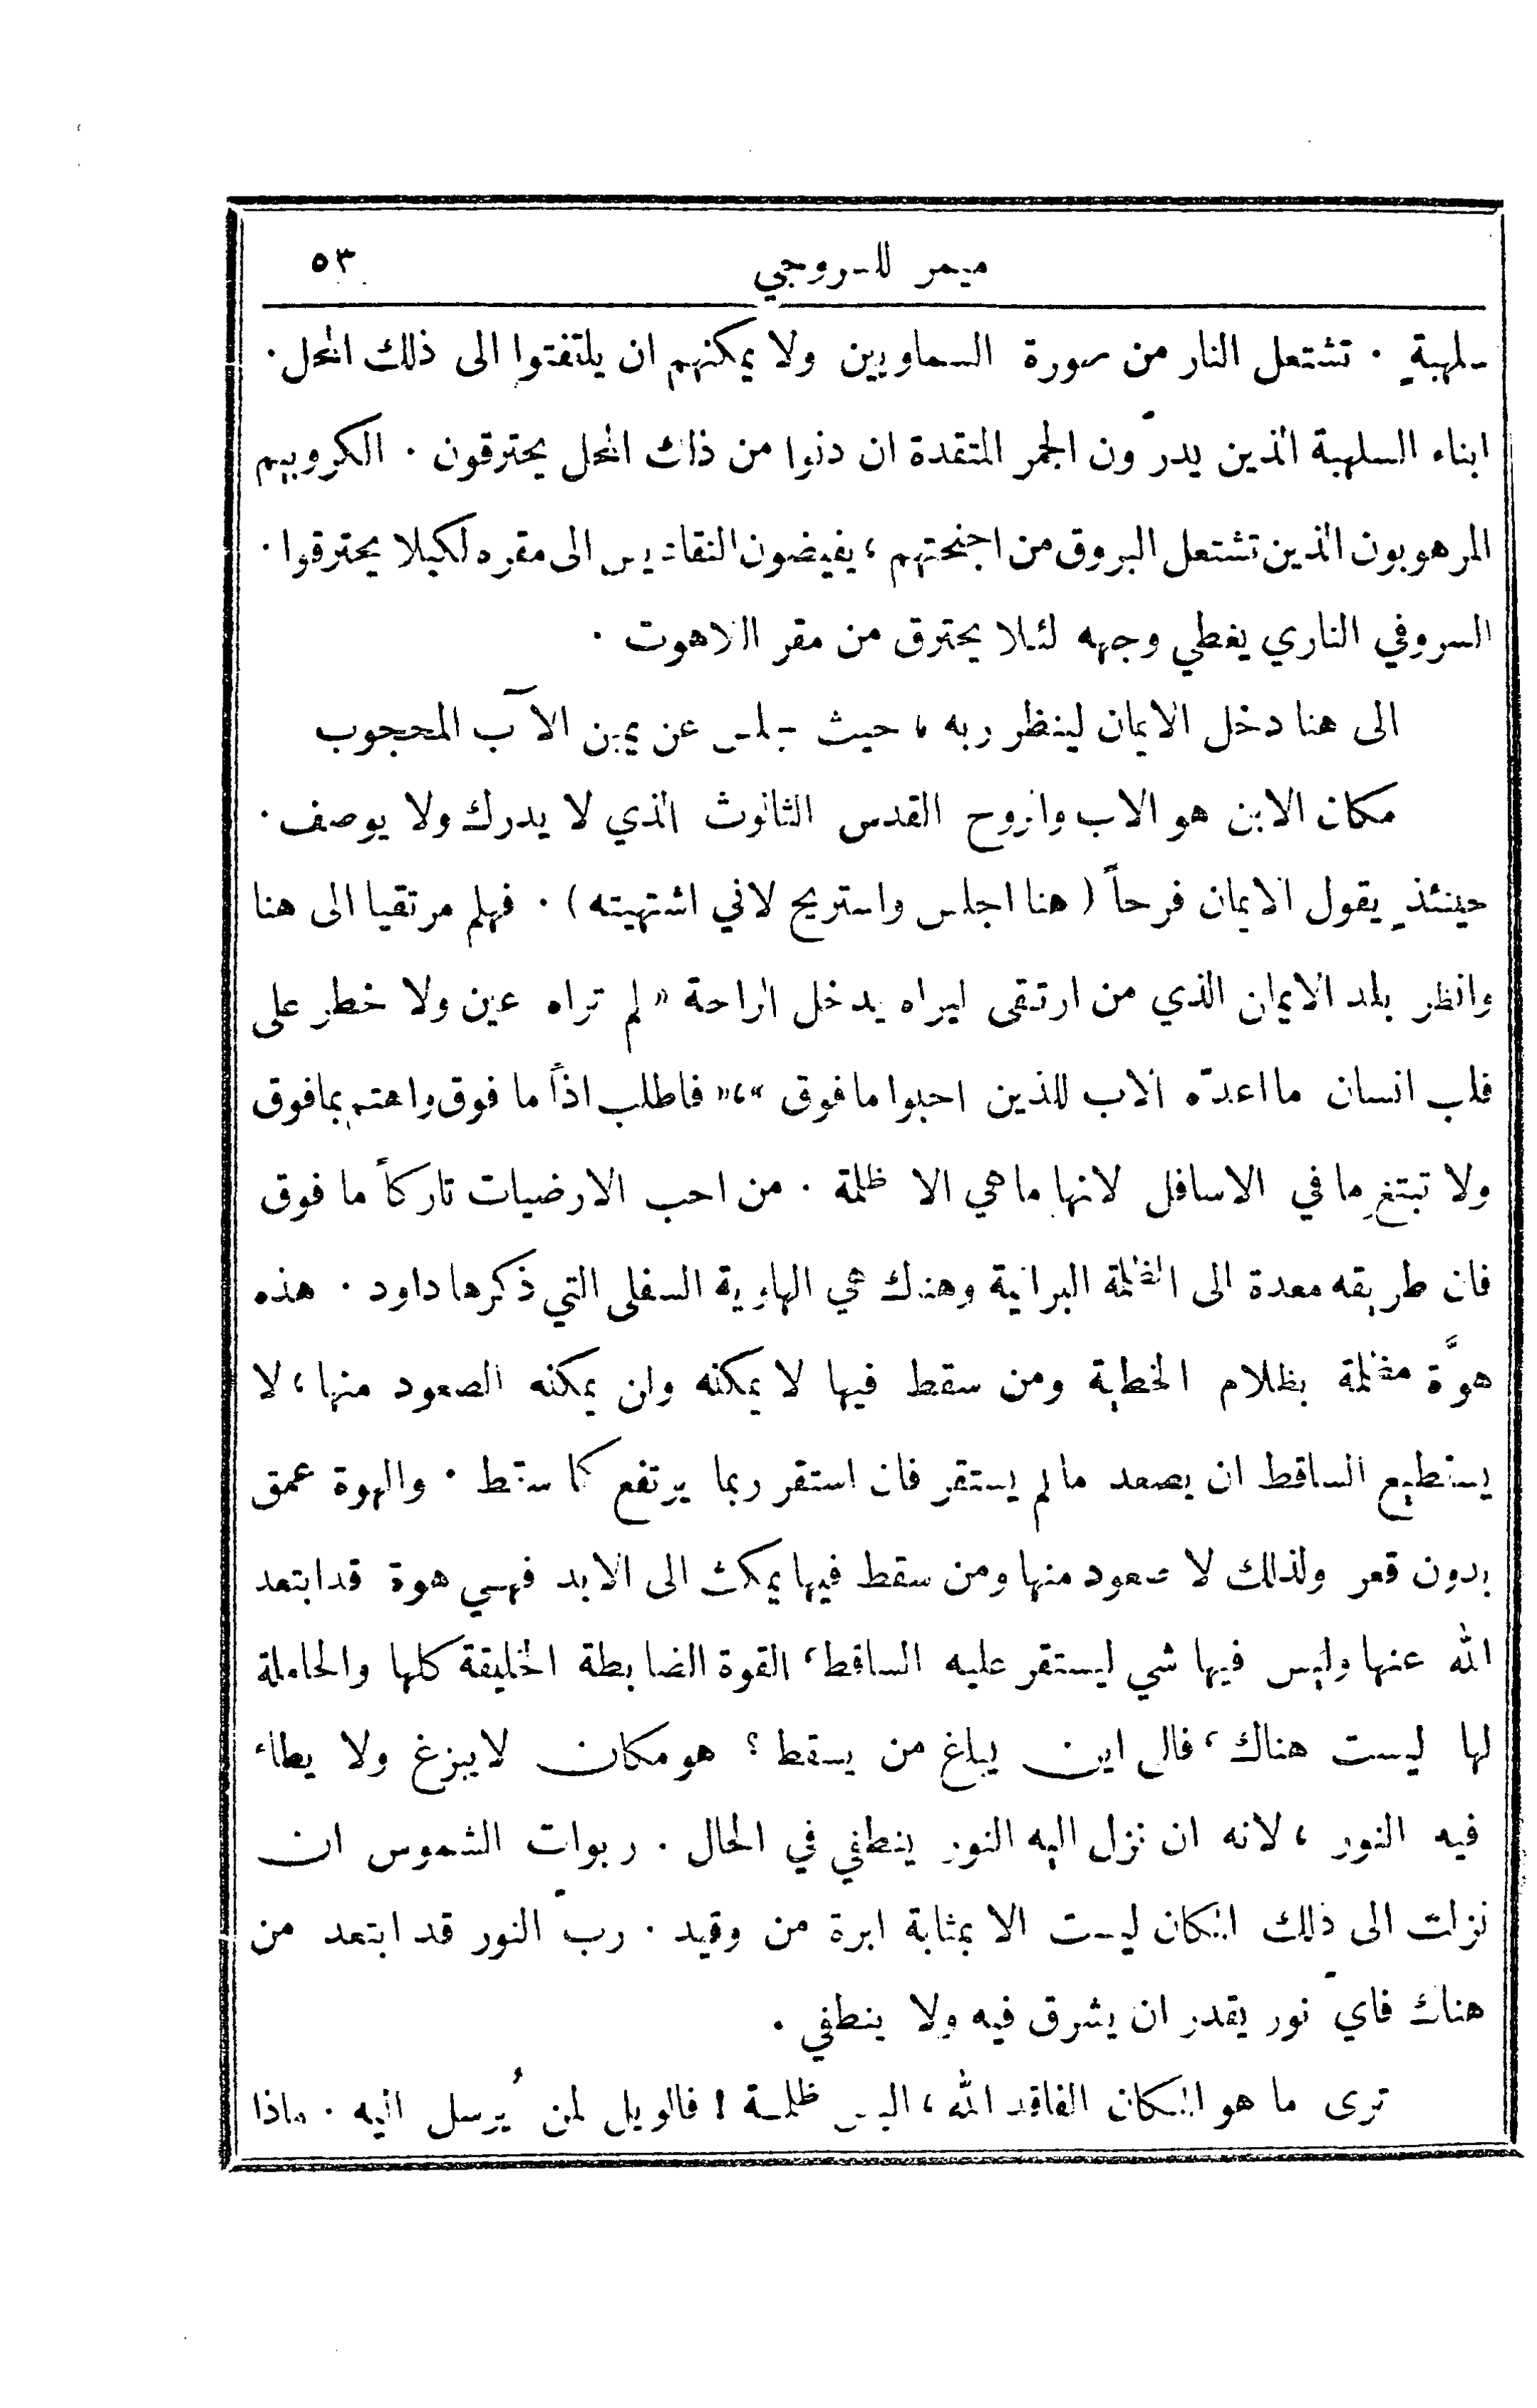 ميمر للسروجي ٥٣
سلهبةٍ . تشتعل النار من سورة السماويين ولا يمكنهم ان يلتفتوا الى ذلك المحل .
ابناء السلهبة الذين يدرّون الجمر المتقدة ان دنوا من ذلك المحل يحترقون . الكروبيم
المرهوبون الذين تشتعل البروق من اجنحتهم ، يفيضون التقاديس الى مقره لكيلا يحترقوا .
السروفي الناري يغطي وجهه لئلا يحترق من مقر اللاهوت .
الى هنا دخل الايمان لينظر ربه ، حيث جلس عن يمين الآب المحجوب
مكان الابن هو الاب والروح القدس الثالوث الذي لا يدرك ولا يوصف .
حينئذٍ يقول الايمان فرحاً ( هنا اجلس واستريح لاني اشتهيته ) . فهلم مرتقيا الى هنا
وانظر بلد الايمان الذي من ارتقى ليراه يدخل الراحة « لم تراه عين ولا خطر على
قلب انسان ما اعدّه الاب للذين احبوا ما فوق »،« فاطلب اذاً ما فوق واهتم بما فوق
ولا تبتغِ ما في الاسافل لانها ما هي الا ظلمة . من احب الارضيات تاركاً ما فوق
فان طريقه معدة الى الظلمة البرانية وهناك هي الهاوية السفلى التي ذكرها داود . هذه
هوَّة مظلمة بظلام الخطية ومن سقط فيها لا يمكنه وان يمكنه الصعود منها ، لا
يستطيع الساقط ان يصعد ما لم يستقر فان استقر ربما يرتفع كما سقط . والهوة عمق
بدون قعر ولذلك لا صعود منها ومن سقط فيها يمكث الى الابد فهي هوة قد ابتعد
الله عنها وليس فيها شي ليستقر عليه الساقط ، القوة الضابطة الخليقة كلها والحاملة
لها ليست هناك ، فالى اين يبلغ من يسقط ؟ هو مكان لا يبزغ ولا يطاء
فيه النور ، لانه ان نزل اليه النور ينطفي في الحال . ربوات الشموس ان
نزلت الى ذلك المكان ليست الا بمثابة ابرة من وقيد . ربّ النور قد ابتعد من
هناك فايّ نور يقدر ان يشرق فيه ولا ينطفي .
ترى ما هو المكان الفاقد الله ، اليس ظلمة ! فالويل لمن يُرسل اليه . ماذا